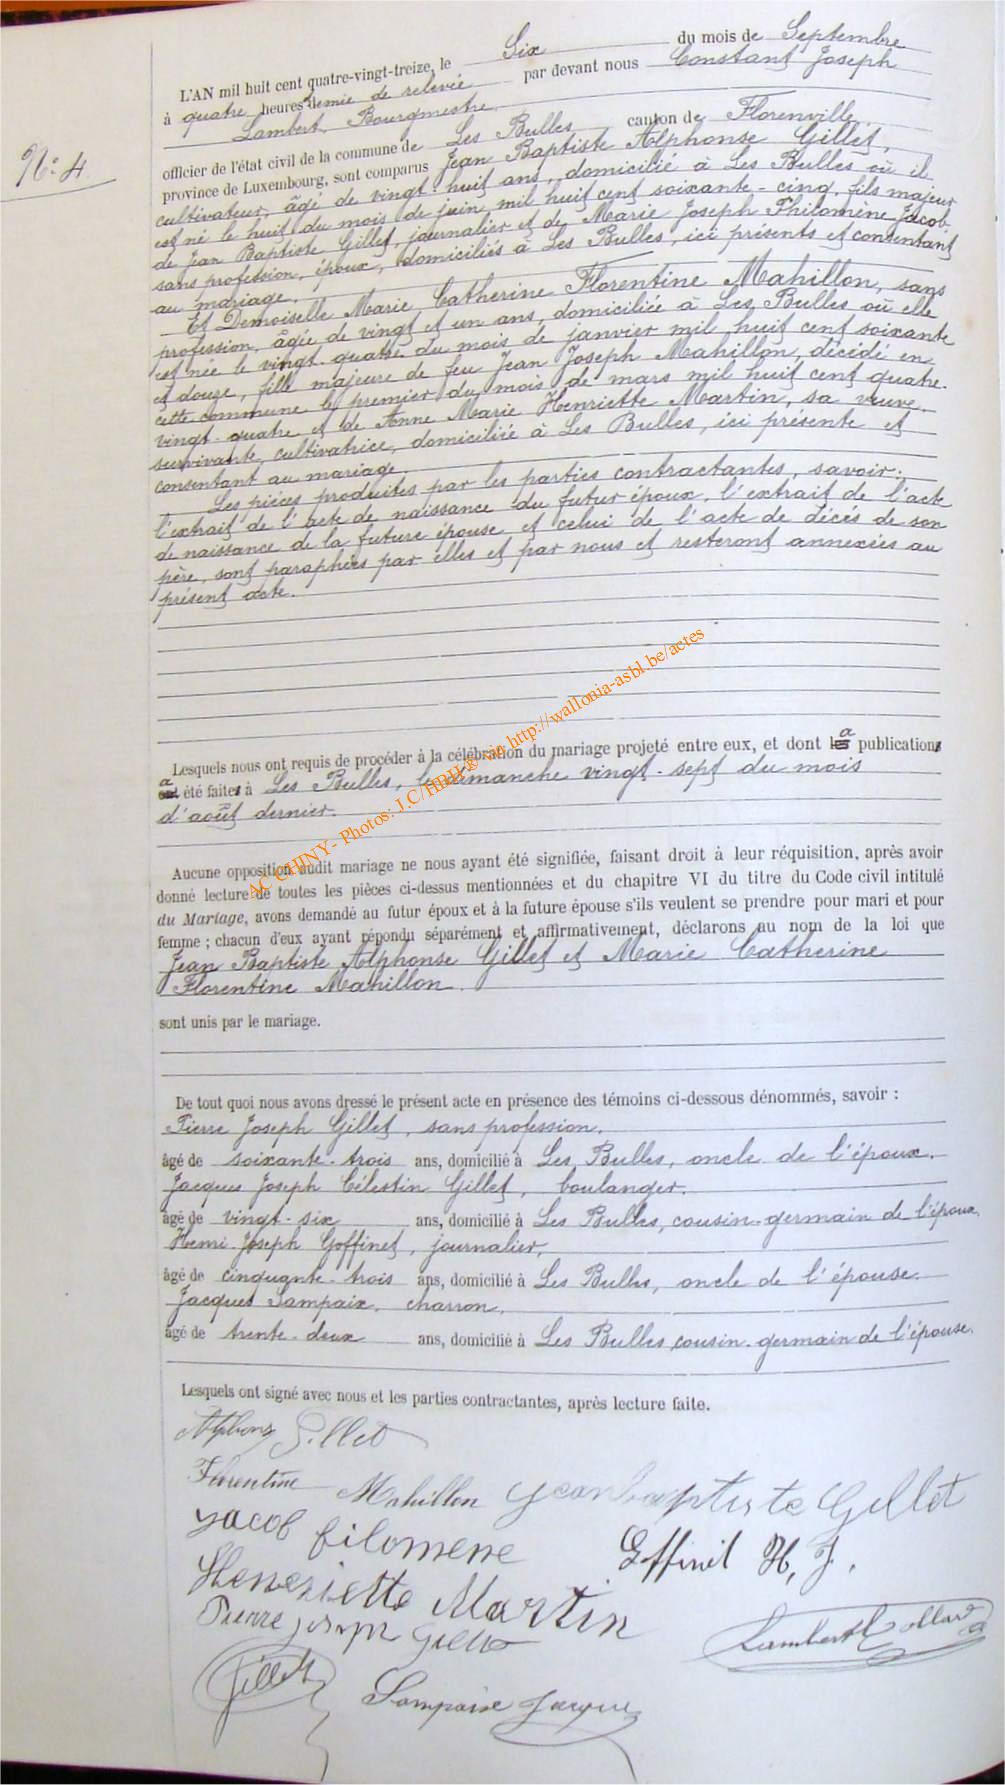 N° 4
L'AN mil huit cent quatre-vingt-treize, le Six du mois de Septembre
à quatre heures demie de relevée par devant nous Constant Joseph
Lambert, Bourgmestre
officier de l'état civil de la commune de Les Bulles canton de Florenville,
province de Luxembourg, sont comparus Jean Baptiste Alphonse Gillet,
cultivateur, âgé de vingt-huit ans, domicilié à Les Bulles où il
est né le huit du mois de juin mil huit cent soixante-cinq, fils majeur
de Jean Baptiste Gillet, journalier et de Marie Joseph Philomène Jacob,
sans profession, époux, domiciliés à Les Bulles, ici présents et consentant
au mariage.
Et Demoiselle Marie Catherine Florentine Mahillon, sans
profession, âgée de vingt et un ans, domiciliée à Les Bulles où elle
est née le vingt-quatre du mois de janvier mil huit cent soixante
et douze, fille majeure de feu Jean Joseph Mahillon, décidé en
cette commune le premier du mois de mars mil huit cent quatre-
vingt-quatre et de Anne Marie Henriette Martin, sa veuve
survivante, cultivatrice, domiciliée à Les Bulles, ici présente et
consentant au mariage.
Les pièces produites par les parties contractantes, savoir:
l'extrait de l'acte de naissance du futur époux, l'extrait de l'acte
de naissance de la future épouse et celui de l'acte de décès de son
père, sont paraphées par elles et par nous et resteront annexées au
présent acte.
Lesquels nous ont requis de procéder à la célébration du mariage projeté entre eux, et dont la publication
a été faite à Les Bulles, le dimanche vingt-sept du mois
d'août dernier.
AC CHINY - Photos: J.C/HBH® via http://wallonia-asbl.be/actes
Aucune opposition audit mariage ne nous ayant été signifiée, faisant droit à leur réquisition, après avoir
donné lecture de toutes les pièces ci-dessus mentionnées et du chapitre VI du titre du Code civil intitulé
du Mariage, avons demandé au futur époux et à la future épouse s'ils veulent se prendre pour mari et pour
femme ; chacun d'eux ayant répondu séparément et affirmativement, déclarons au nom de la loi que
Jean Baptiste Alphonse Gillet et Marie Catherine
Florentine Mahillon.
sont unis par le mariage.
De tout quoi nous avons dressé le présent acte en présence des témoins ci-dessous dénommés, savoir :
Pierre Joseph Gillet, sans profession,
âgé de soixante-trois ans, domicilié à Les Bulles, oncle de l'époux.
Jacques Joseph Célestin Gillet, boulanger.
âgé de vingt-six ans, domicilié à Les Bulles, cousin-germain de l'époux.
Henri Joseph Goffinet, journalier,
âgé de cinquante-trois ans, domicilié à Les Bulles, oncle de l'épouse.
Jacques Lampaix, charron,
âgé de trente-deux ans, domicilié à Les Bulles cousin-germain de l'épouse.
Lesquels ont signé avec nous et les parties contractantes, après lecture faite.
Alphons Gillet
Florentine Mahillon Jeanbaptiste Gillet
Jacob filomene Goffinet H, J.
Henriette Martin
Pierre joseph Gillet Lambert
Gillet Lampaix Jacques